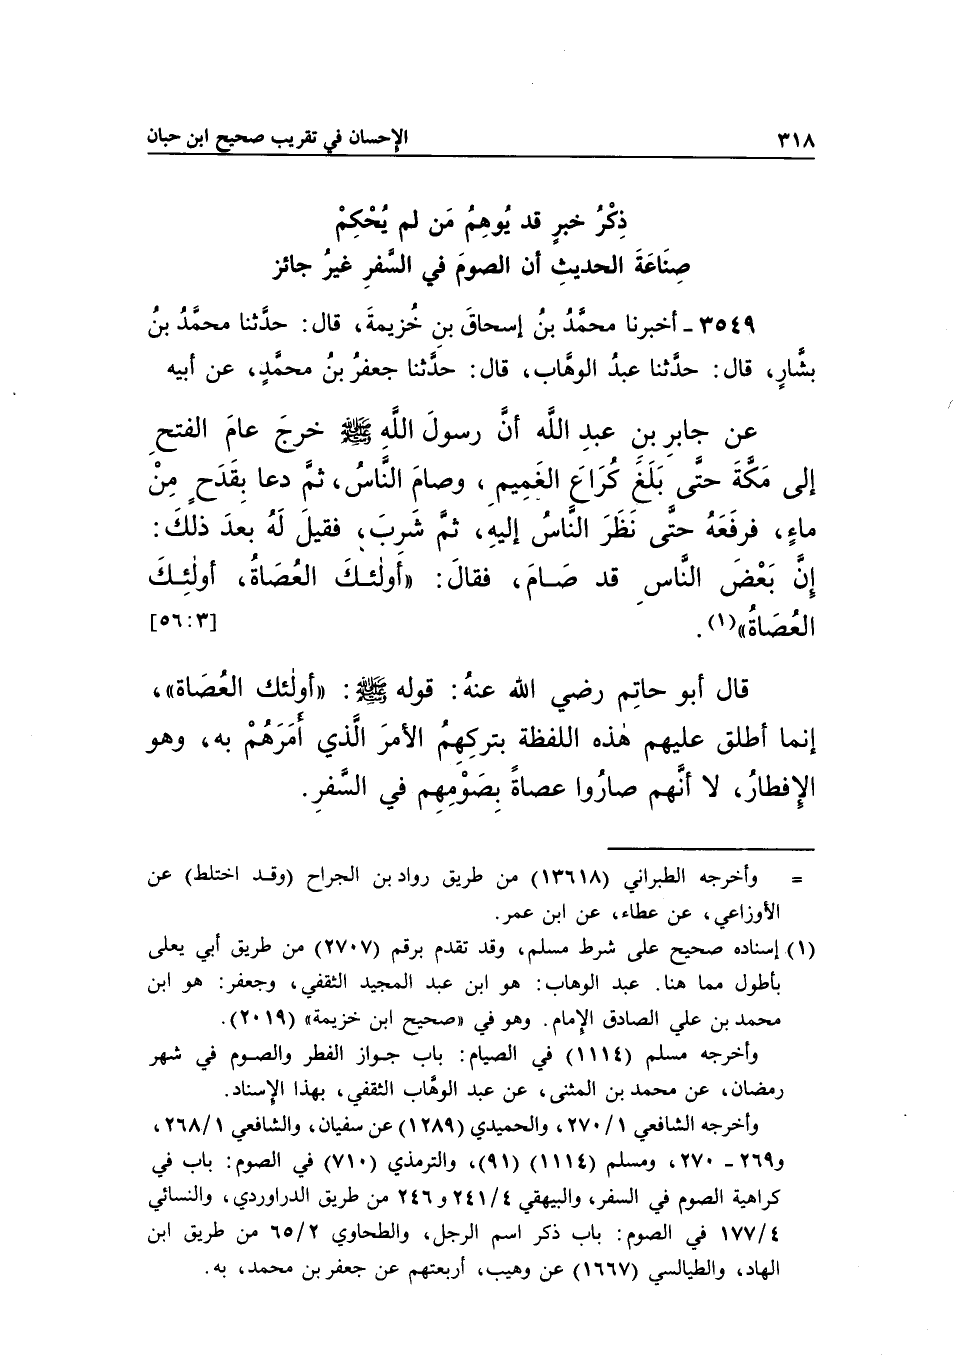 ٣١٨ الإحسان في تقريب صحيح ابن حبان
ذِكْرُ خبرٍ قد يُوهِمُ مَن لم يُحْكِمْ
صِنَاعَةَ الحديثِ أن الصومَ في السَّفرِ غيرُ جائز
٣٥٤٩ - أخبرنا محمَّدُ بنُ إسحاقَ بنِ خُزيمةَ، قال: حدَّثنا محمَّدُ بنُ
بشَّارٍ، قال: حدَّثنا عبدُ الوهَّاب، قال: حدَّثنا جعفرُ بنُ محمَّدٍ، عن أبيه
عن جابرِ بنِ عبدِ اللَّه أنَّ رسولَ اللَّهِ ﷺ خرجَ عامَ الفتحِ
إلى مَكَّةَ حتَّى بَلَغَ كُرَاعَ الغَمِيمِ، وصامَ النَّاسُ، ثمَّ دعا بِقَدَحٍ مِنْ
ماءٍ، فرفَعَهُ حتَّى نَظَرَ النَّاسُ إليهِ، ثمَّ شَرِبَ، فقيلَ لَهُ بعدَ ذلكَ:
إنَّ بَعْضَ النَّاسِ قد صَـامَ، فقالَ: «أولٰئـكَ العُصَـاةُ، أولٰئِـكَ
العُصَـاةُ»(١). [٥٦:٣]
قال أبو حاتِم رضي الله عنهُ: قوله ﷺ: «أولٰئك العُصَاة»،
إنما أطلق عليهم هٰذه اللفظة بتركِهِمُ الأمرَ الَّذي أَمَرَهُمْ به، وهو
الإِفطارُ، لا أنَّهم صارُوا عصاةً بِصَوْمِهِم في السَّفرِ.
= وأخرجه الطبراني (١٣٦١٨) من طريق رواد بن الجراح (وقـد اختلط) عن
الأوزاعي، عن عطاء، عن ابن عمر.
(١) إسناده صحيح على شرط مسلم، وقد تقدم برقم (٢٧٠٧) من طريق أبي يعلى
بأطول مما هنا. عبد الوهاب: هو ابن عبد المجيد الثقفي، وجعفر: هو ابن
محمد بن علي الصادق الإمام. وهو في «صحيح ابن خزيمة» (٢٠١٩).
وأخرجه مسلم (١١١٤) في الصيام: باب جـواز الفطر والصوم في شهر
رمضان، عن محمد بن المثنى، عن عبد الوهَّاب الثقفي، بهذا الإِسناد.
وأخرجه الشافعي ١/ ٢٧٠، والحميدي (١٢٨٩) عن سفيان، والشافعي ١/ ٢٦٨،
و٢٦٩ - ٢٧٠، ومسلم (١١١٤) (٩١)، والترمذي (٧١٠) في الصوم: باب في
كراهية الصوم في السفر، والبيهقي ٤/ ٢٤١ و٢٤٦ من طريق الدراوردي، والنسائي
٤/ ١٧٧ في الصوم: باب ذكر اسم الرجل، والطحاوي ٢/ ٦٥ من طريق ابن
الهاد، والطيالسي (١٦٦٧) عن وهيب، أربعتهم عن جعفر بن محمد، به.